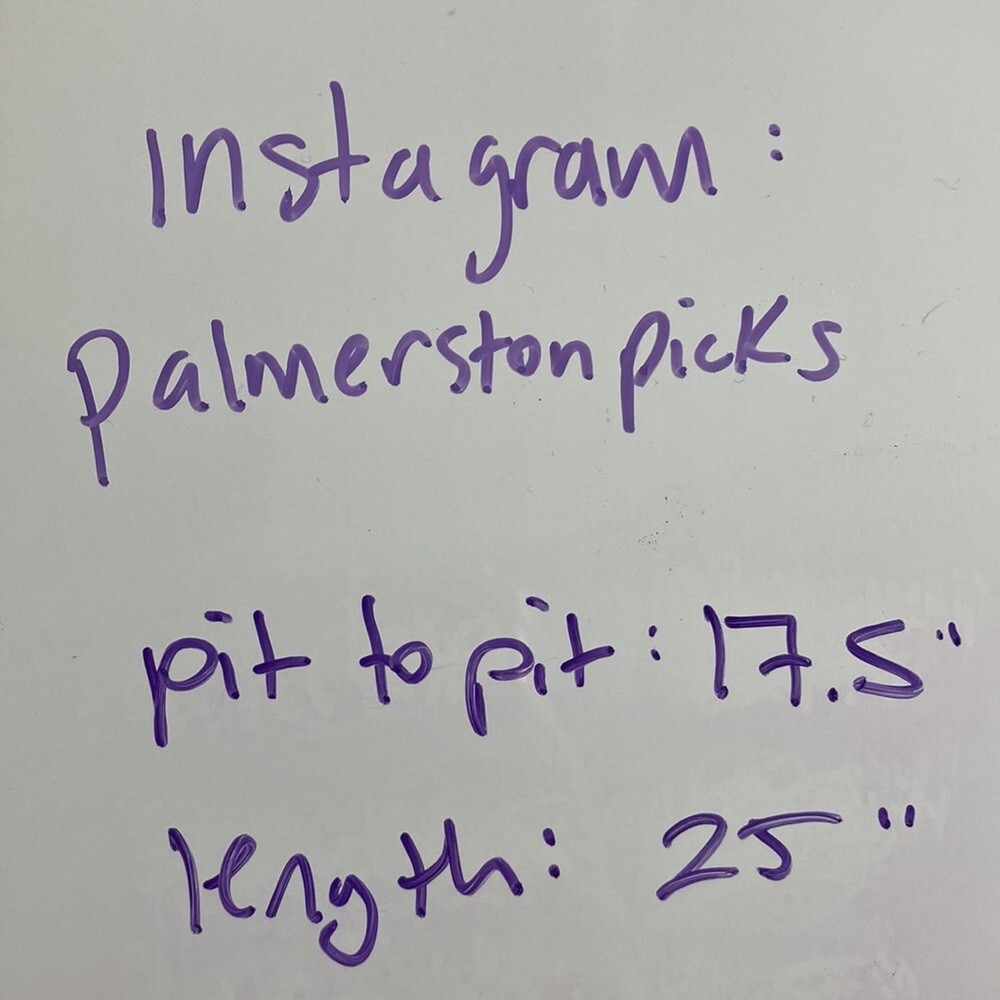 Instagram:
Palmerstonpicks
pit to pit: 17.5"
length: 25"